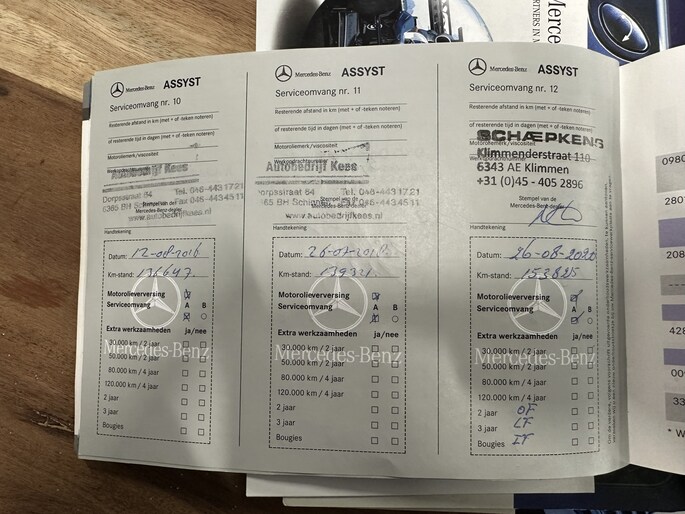 Mercedes-Benz ASSYST
Serviceomvang nr. 10
Resterende afstand in km (met + of -teken noteren)
of resterende tijd in dagen (met + of -teken noteren)
Motoroliemerk/viscositeit
Autobedrijf Kees
Dorpsstraat 64 Tel. 046-443 17 21
Stempel van de
Mercedes-Benz-dealer
Handtekening
Datum: 12-08-2016
Km-stand: 136647
Motorolieverversing
Serviceomvang A B
Extra werkzaamheden ja/nee
30.000 km / 2 jaar
50.000 km / 2 jaar
80.000 km / 4 jaar
120.000 km / 4 jaar
2 jaar
3 jaar
Bougies
Mercedes-Benz
Mercedes-Benz ASSYST
Serviceomvang nr. 11
Resterende afstand in km (met + of -teken noteren)
of resterende tijd in dagen (met + of -teken noteren)
Motoroliemerk/viscositeit
Autobedrijf Kees
Dorpsstraat 64 Tel. 046-443 17 21
www.autobedrijfkees.nl
Handtekening
Datum: 26-07-2018
Km-stand:
Motorolieverversing
Serviceomvang A B
Extra werkzaamheden ja/nee
30.000 km / 2 jaar
50.000 km / 2 jaar
80.000 km / 4 jaar
120.000 km / 4 jaar
2 jaar
3 jaar
Bougies
Mercedes-Benz
Mercedes-Benz ASSYST
Serviceomvang nr. 12
Resterende afstand in km (met + of -teken noteren)
of resterende tijd in dagen (met + of -teken noteren)
SCHÆPKENS
Motoroliemerk/viscositeit
Klimmenderstraat 110
6343 AE Klimmen
+31 (0)45 - 405 2896
Stempel van de
Mercedes-Benz-dealer
Handtekening
Datum: 26-08-2020
Km-stand: 153825
Motorolieverversing
Serviceomvang A B
Extra werkzaamheden ja/nee
30.000 km / 2 jaar
50.000 km / 2 jaar
80.000 km / 4 jaar
120.000 km / 4 jaar
2 jaar OF
3 jaar LF
Bougies IF
Mercedes-Benz